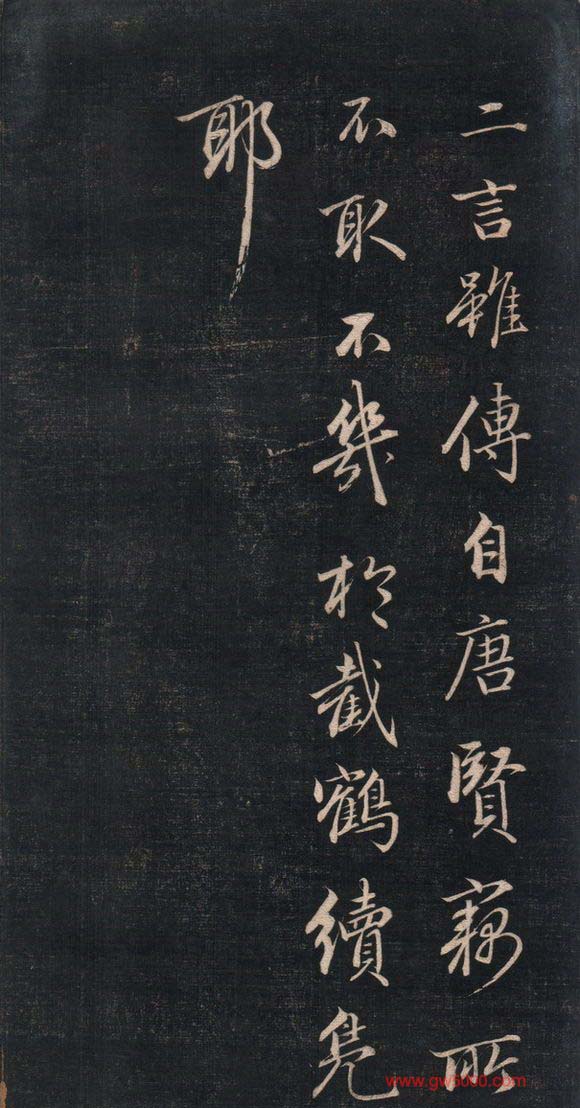 二言雖傳自唐賢竊所
不取不幾於截鶴續鳧
耶
www.gw5000.com